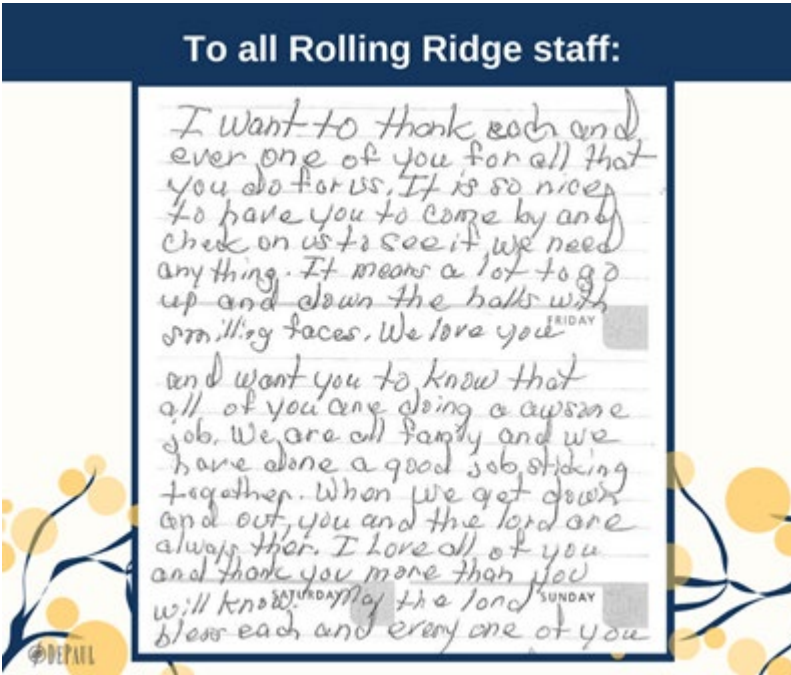 To all Rolling Ridge staff:
I want to thank each and
ever one of you for all that
you do for us. It is so nice
to have you to come by and
check on us to see if we need
any thing. It means a lot to go
up and down the halls with
smilling faces. We love you
FRIDAY
and want you to know that
all of you are doing a awsome
job. We are all family and we
have done a good job sticking
together. When we get down
and out, you and the lord are
always ther. I Love all of you
and thank you more than you
will know. May the lord
SATURDAY SUNDAY
bless each and every one of you
DEPAUL